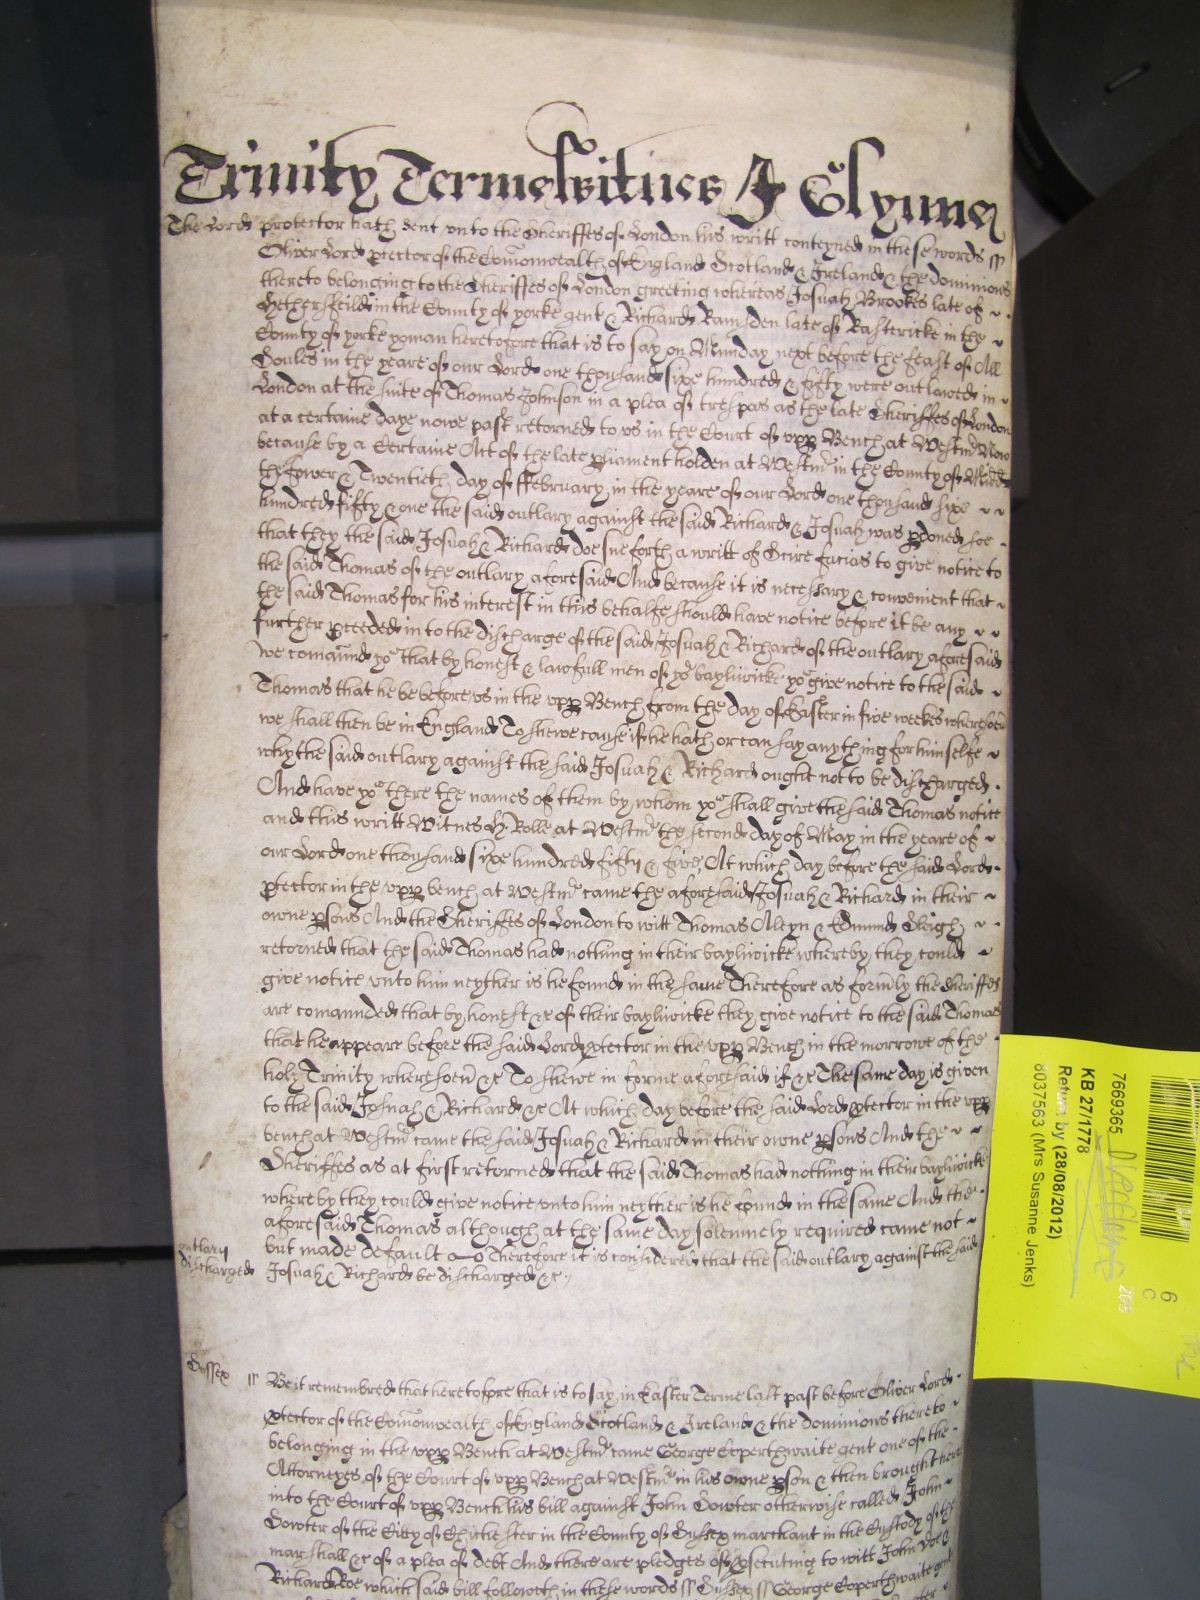 Trinity Terme Witnes J Glynne
The Lord protector hath sent unto the Sheriffes of London his writt conteyned in these words ss
Oliver Lord ptector of the Comonwealth of England Scotland & Ireland & the dominions
thereto belonging to the Sheriffes of London greeting whereas Josuah Brookes late of
in the County of yorke gent & Richard Ramsden late of Rastericke in the
County of yorke yoman heretofore that is to say on Munday next before the feast of All
Soules in the yeare of our Lord one thousand sixe hundred & fifty were outlawed in
London at the suite of Thomas Johnson in a plea of trespas as the late Sheriffes of London
at a certaine daye nowe past retorned to us in the Court of upp Bench at Westmr Now
because by a Certaine Act of the late pliament holden at Westmr in the County of Midd
the fower & Twentieth day of ffebruary in the yeare of our Lord one thousand sixe
hundred fifty & one the said outlary against the said Richard & Josuah was pdoned soe
that they the said Josuah & Richard doe sue forth a writt of Scire facias to give notice to
the said Thomas of the outlary aforesaid And because it is necessary & convenient that
the said Thomas for his interest in this behalfe should have notice before it be any
further pceeded in to the discharge of the said Josuah & Richard of the outlary aforesaid
we comaund yor that by honest & lawfull men of yor baylywicke yor give notice to the said
Thomas that he be before us in the upp Bench from the day of Easter in five weekes wheresoevr
we shall then be in England To shewe cause if he hath or can say any thing for himselfe
why the said outlary against the said Josuah & Richard ought not to be discharged
And have yor there the names of them by whom yor shall give the said Thomas notice
and this writt Witnes H Rolle at Westmr the second day of May in the yeare of
our Lord one thousand sixe hundred fifty & five At which day before the said Lord
ptector in the upp bench at Westmr came the aforesaid Josuah & Richard in their
owne psons And the Sheriffes of London to witt Thomas Alleyn & Edmund Sleigh
retorned that the said Thomas had nothing in their baylywicke whereby they could
give notice unto him neyther is he found in the same Therefore as formly the sheriffes
are comaunded that by honest &c of their baylywicke they give notice to the said Thomas
that he appeare before the said Lord ptector in the upp Bench in the morrowe of the
holy Trinity wheresoevr &c To shewe in forme aforesaid if &c The same day is given
to the said Josuah & Richard &c At which day before the said Lord ptector in the upp
bench at Westmr came the said Josuah & Richard in their owne psons And the
Sheriffes as at first retorned that the said Thomas had nothing in their baylywicke
whereby they could give notice unto him neyther is he found in the same And the
aforesaid Thomas although at the same day solemnely required came not
but made default Therefore it is considered that the said outlary against the said
outlary
discharged
Josuah & Richard be discharged &c
Sussex ss Be it remembred that heretofore that is to say in Easter Terme last past before Oliver Lord
ptector of the Comonwealth of England Scotland & Ireland & the dominions thereto
belonging in the upp Bench at Westmr came George Coperthwaite gent one of the
Attorneyes of the Court of upp Bench at Westmr in his owne pson & then brought here
into the Court of upp Bench his bill against John Sowter otherwise called John
Sowter of the Citty of Chichester in the County of Sussex marchant in the Custody of the
marshall &c of a plea of debt And there are pledges of psecuting to witt John Doe &
Richard Roe which said bill followeth in these words ss Sussex ss George Coperthwaite gent
7669365
KB 27/1778
Return by (28/08/2012)
8037563 (Mrs Susanne Jenks)
6
C